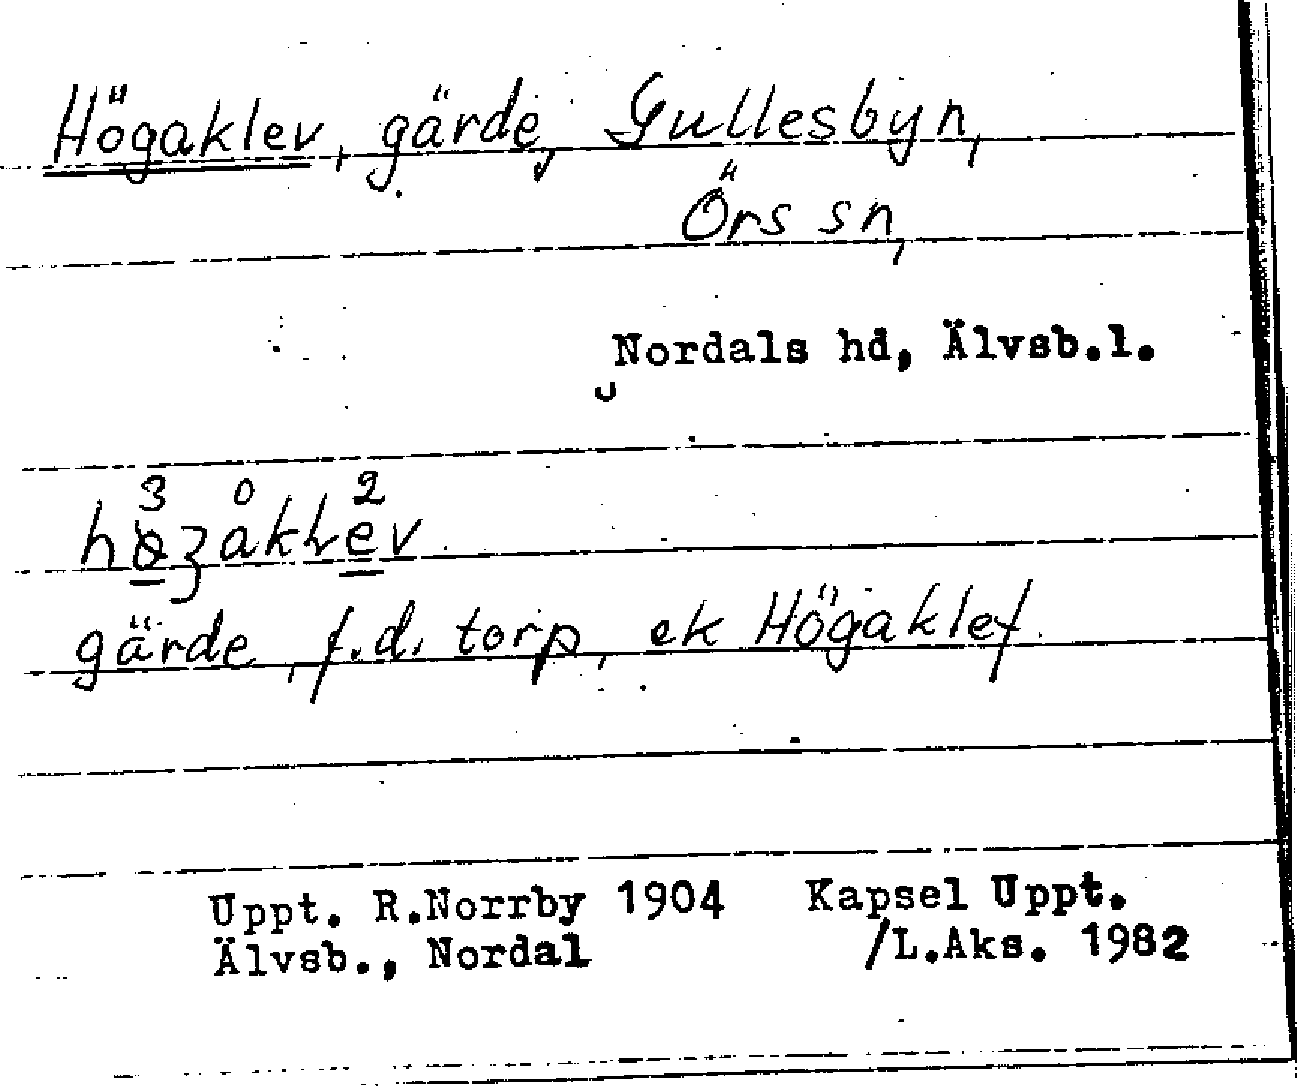 Högaklev, gärde, Gullesbyn,
Örs sn,
Nordals hd, Älvsb.l.
3 0 2
høʒaklev
gärde, f.d. torp, ek Högaklef
Uppt. R.Norrby 1904 Kapsel Uppt.
Älvsb., Nordal /L.Aks. 1982